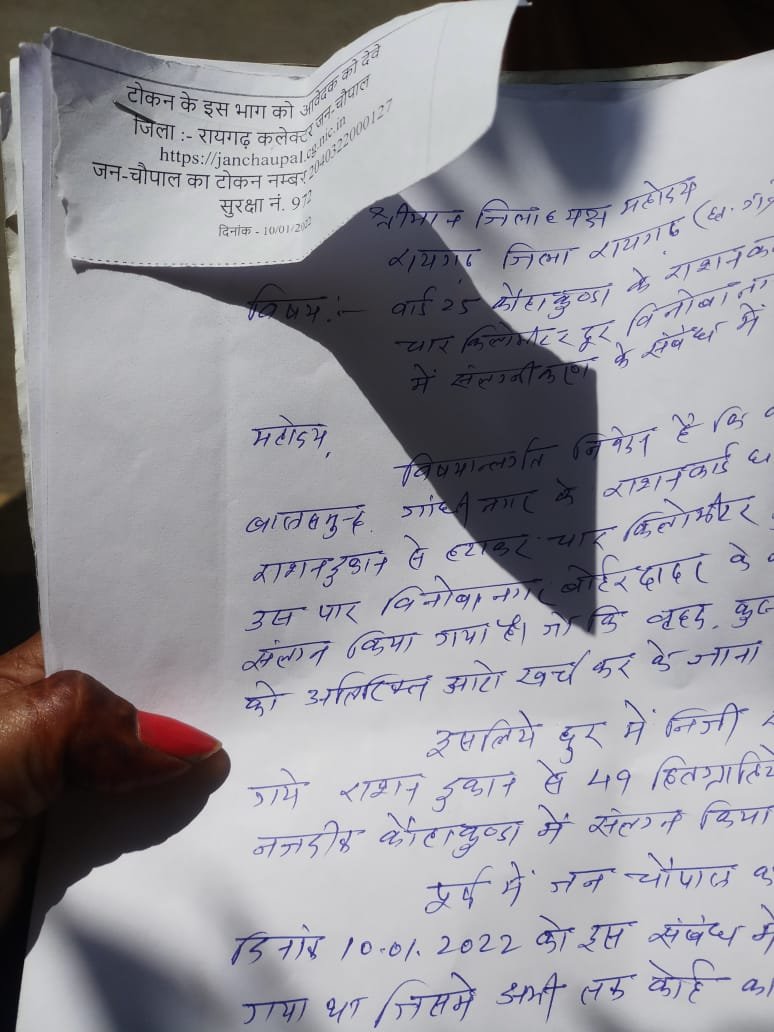 टोकन के इस भाग को आवेदक को देवे
जिला :- रायगढ़ कलेक्टर जन-चौपाल
https://janchaupal.cg.nic.in
जन-चौपाल का टोकन नम्बर 2040322000127
सुरक्षा नं. 972
दिनांक - 10/01/2022
श्रीमान जिलाध्यक्ष महोदय
रायगढ़ जिला रायगढ़
विषय :- वार्ड 25 कौहाकुण्डा के राशन
चार किलोमीटर दूर विनोबा
में संलग्नीकरण के संबंध में
महोदय,
विषयान्तर्गत निवेदन है कि
गांधी नगर के राशनकार्ड
राशन दुकान से हटाकर चार किलोमीटर
उस पार विनोबा नगर बोईरदादर के
संलग्न किया गया है। जो कि वृद्ध,
को अतिरिक्त आटो खर्च कर के जाना
इसलिये दुर में निजी
गये राशन दुकान से 49
नजदीक कौहाकुण्डा में संलग्न किया
पूर्व में जन चौपाल
दिनांक 10.01.2022 को इस संबंध में
गया था जिसमे अभी तक कोई